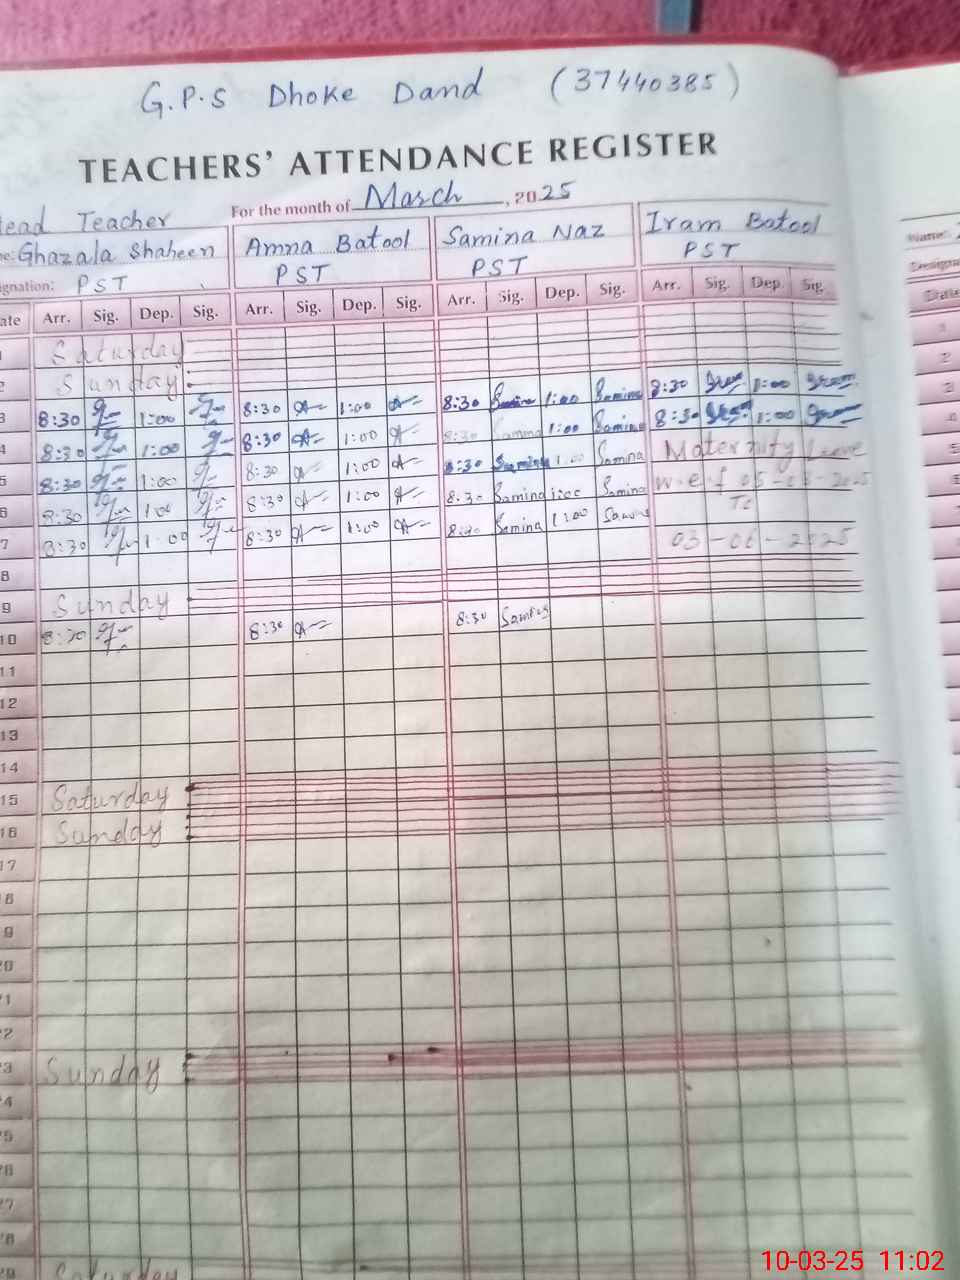 G.P.S Dhoke Dand (37440385)
TEACHERS' ATTENDANCE REGISTER
For the month of March, 2025
Head Teacher
Ghazala Shaheen Amna Batool Samina Naz Iram Batool
PST PST PST PST
Arr. Sig. Dep. Sig. Arr. Sig. Dep. Sig. Arr. Sig. Dep. Sig. Arr. Sig. Dep. Sig.
1 Saturday
2 Sunday
3 8:30 1:00 8:30 1:00 8:30 Samina 1:00 Samina 8:30 Iram 1:00 Iram
4 8:30 1:00 8:30 1:00 8:30 Samina 1:00 Samina 8:30 Iram 1:00 Iram
5 8:30 1:00 8:30 1:00 8:30 Samina 1:00 Samina Maternity Leave
6 8:30 1:00 8:30 1:00 8:30 Samina 1:00 Samina w.e.f 05-03-2025
To
7 8:30 1:00 8:30 1:00 8:30 Samina 1:00 03-06-2025
8
9 Sunday
10 8:30 8:30 8:30
11
12
13
14
15 Saturday
16 Sunday
17
18
19
20
21
22
23 Sunday
24
25
26
27
28
29 Saturday
Name:
10-03-25 11:02